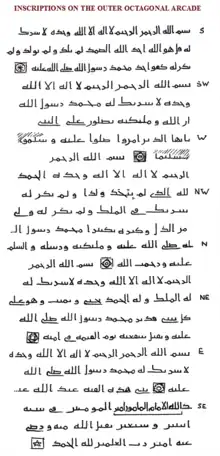 INSCRIPTIONS ON THE OUTER OCTAGONAL ARCADE
بسم الله الرحمن الرحيم لا اله الا الله وحده لا شريك S
له قل هو الله احد الله الصمد لم يلد ولم يولد ولم
يكن له كفوا احد محمد رسول الله صلى الله عليه
بسم الله الرحمن الرحيم لا اله الا الله SW
وحده لا شريك له محمد رسول الله
ان الله وملئكته يصلون على النبي
يايها الذين امنوا صلوا عليه وسلموا W
تسليما بسم الله الرحمن
الرحيم لا اله الا الله وحده الحمد
لله الذي لم يتخذ ولدا ولم يكن له NW
شريك في الملك ولم يكن له ولي
من الذل وكبره تكبيرا محمد رسول ا
لله صلى الله عليه وملئكته ورسله والسلم N
عليه ورحمت الله بسم الله الرحمن
الرحيم لا اله الا الله وحده لا شريك له
له الملك وله الحمد يحيي ويميت وهو على NE
كل شي قدير محمد رسول الله صلى الله
عليه وتقبل شفعته يوم القيمه في امته
بسم الله الرحمن الرحيم لا اله الا الله E
وحده لا شريك له محمد رسول الله صلى الله
عليه بنى هذه القبه عبد الله عبد
الله الامام المامون امير المومنين في سنه SE
اثنتين وسبعين تقبل الله منه ورضي
عنه امين رب العلمين لله الحمد